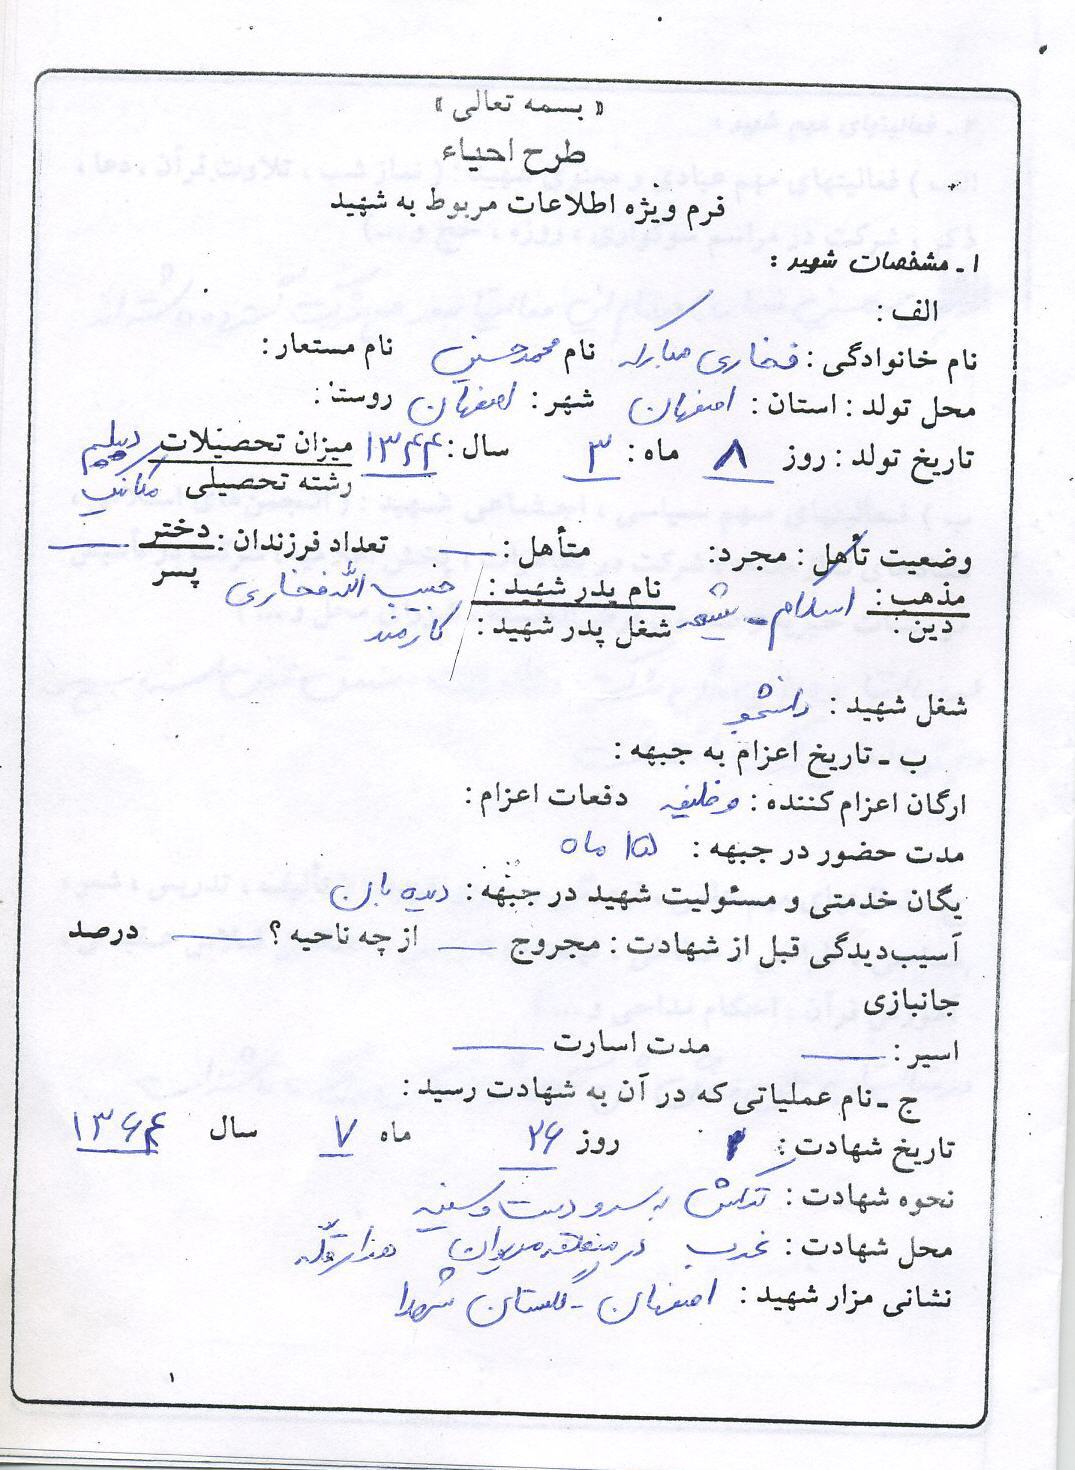 « بسمه تعالی »
طرح احیاء
فرم ویژه اطلاعات مربوط به شهید
۱ ـ مشخصات شهید :
الف :
نام خانوادگی : فخاری مبارکه نام محمدحسین نام مستعار :
محل تولد : استان : اصفهان شهر : اصفهان روستا :
تاریخ تولد : روز ۸ ماه : ۳ سال : ۱۳۴۴ میزان تحصیلات دیپلم
رشته تحصیلی مکانیک
وضعیت تأهل : مجرد : متأهل : تعداد فرزندان : دختر
پسر
مذهب : اسلام ـ شیعه نام پدر شهید : حبیب الله فخاری
دین : شغل پدر شهید : کارمند
شغل شهید : دانشجو
ب ـ تاریخ اعزام به جبهه :
ارگان اعزام کننده : وظیفه دفعات اعزام :
مدت حضور در جبهه : ۱۵ ماه
یگان خدمتی و مسئولیت شهید در جبهه : دیده بان
آسیب‌دیدگی قبل از شهادت : مجروح از چه ناحیه ؟ درصد
جانبازی
اسیر : مدت اسارت
ج ـ نام عملیاتی که در آن به شهادت رسید :
تاریخ شهادت : روز ۲۶ ماه ۷ سال ۱۳۶۴
نحوه شهادت : ترکش به سر و دست و سینه
محل شهادت : غرب در منطقه مریوان هزار قله
نشانی مزار شهید : اصفهان ـ گلستان شهدا
۱